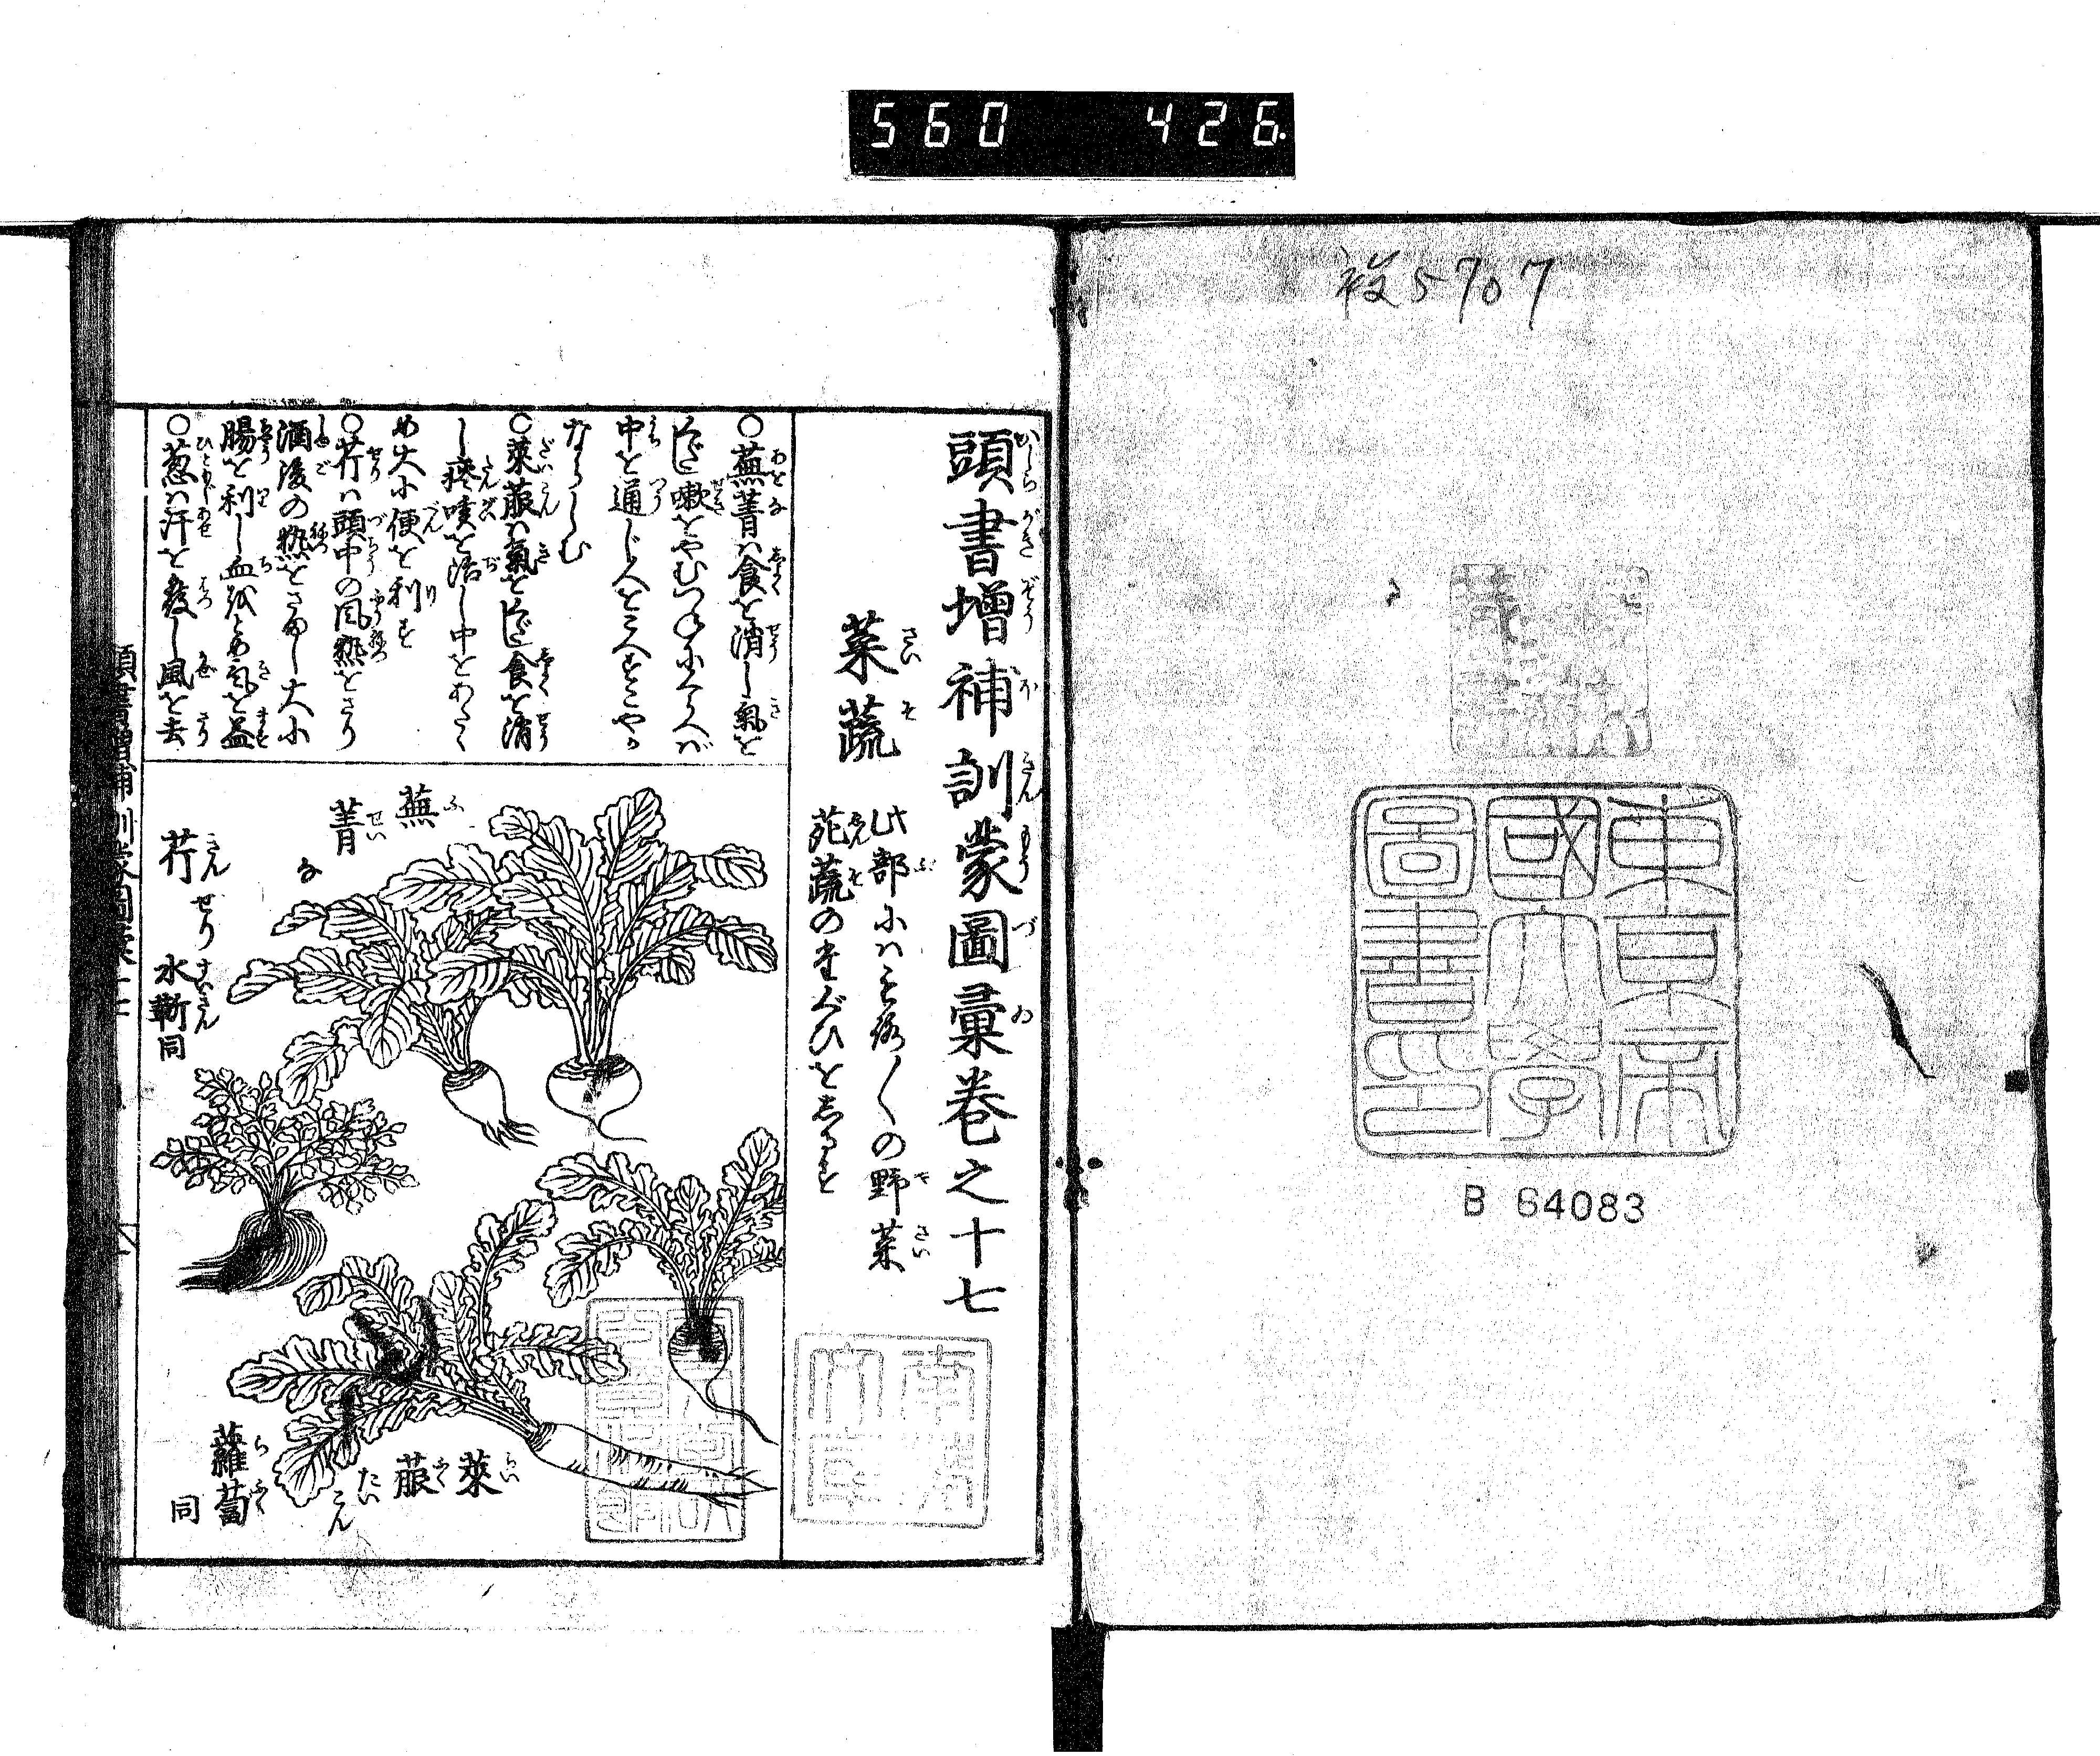 560 426.
衩5707
東京帝
國大學
圖書之印
B 64083
頭書增補訓蒙圖彙卷之十七
菜蔬
此部にハもろ〱の野菜
苑蔬のたぐひをしるす
○蕪菁ハ食を消し氣を
下し嗽をやむつねにくらへバ
中を通じ人をこへすこやか
ならしむ
○萊菔ハ氣を下し食を消
し痰咳を治し中をあたゝ
め大小便を利す
○芹ハ頭中の風熱をさり
酒後の熱をさまし大小
腸を利し血をとめ氣を益
○葱ハ汗を發し風を去
蕪菁
な
芹 せり
水蘄同
萊菔
たいこん
蘿蔔 同
南葵
文庫